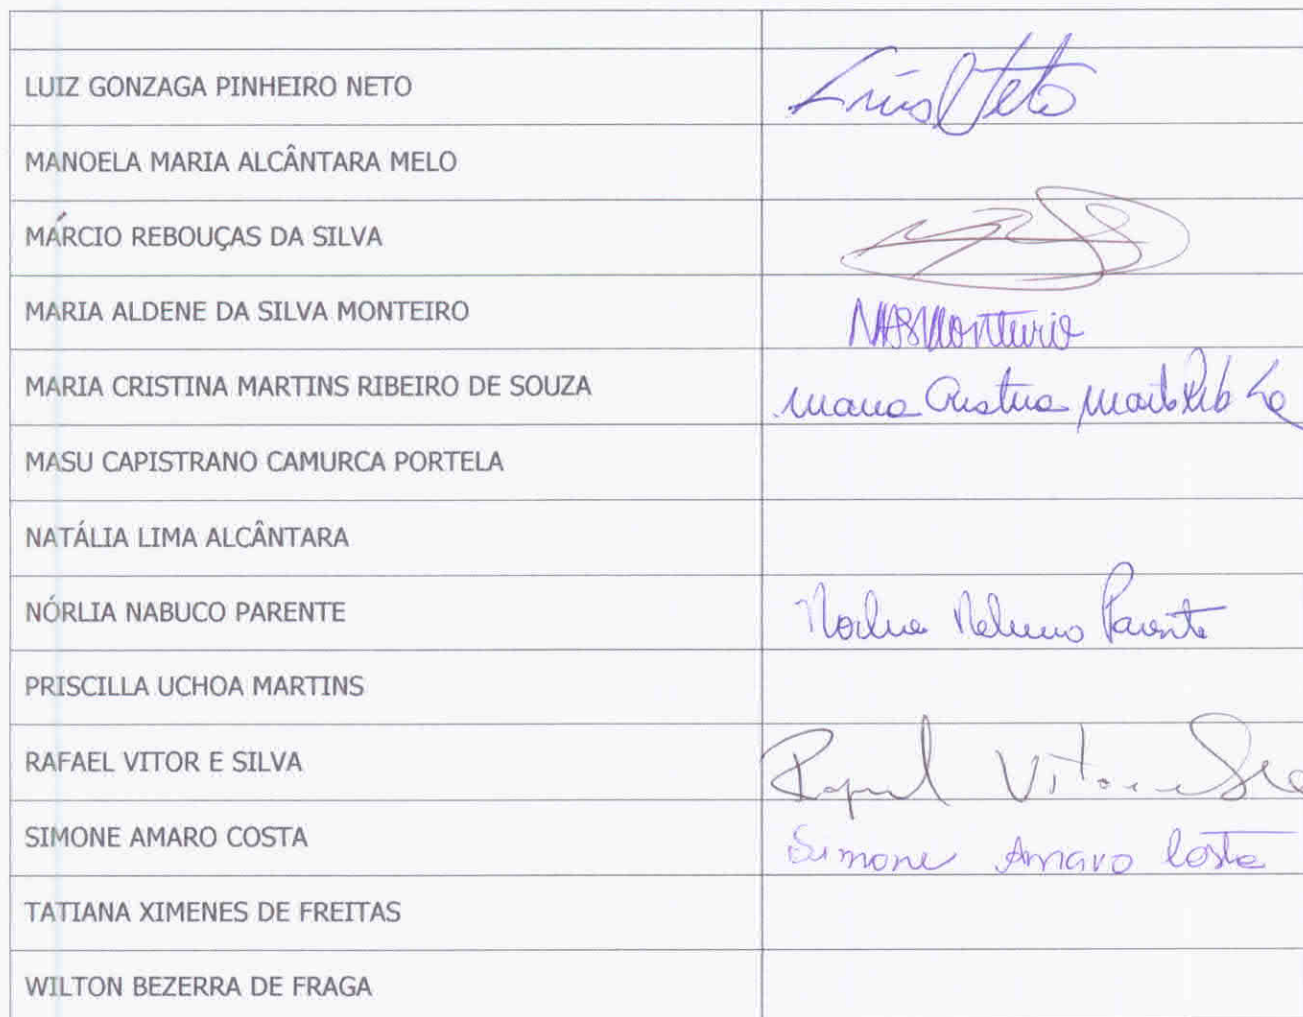 LUIZ GONZAGA PINHEIRO NETO Luis Neto
MANOELA MARIA ALCÂNTARA MELO
MÁRCIO REBOUÇAS DA SILVA
MARIA ALDENE DA SILVA MONTEIRO MASMonteiro
MARIA CRISTINA MARTINS RIBEIRO DE SOUZA Maria Cristina
MASU CAPISTRANO CAMURCA PORTELA
NATÁLIA LIMA ALCÂNTARA
NÓRLIA NABUCO PARENTE Norlia Nabuco Parente
PRISCILLA UCHOA MARTINS
RAFAEL VITOR E SILVA Rafael Vitor e
SIMONE AMARO COSTA Simone Amaro Costa
TATIANA XIMENES DE FREITAS
WILTON BEZERRA DE FRAGA